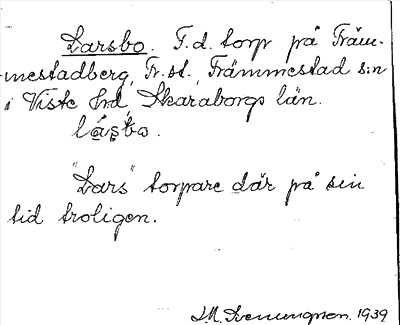 Larsbo. F.d. torp på Främ-
mestadberg, Fr.st., Främmestad s:n
i Viste hrd, Skaraborgs län.
"Lars" torpare där på sin
tid troligen.
1939